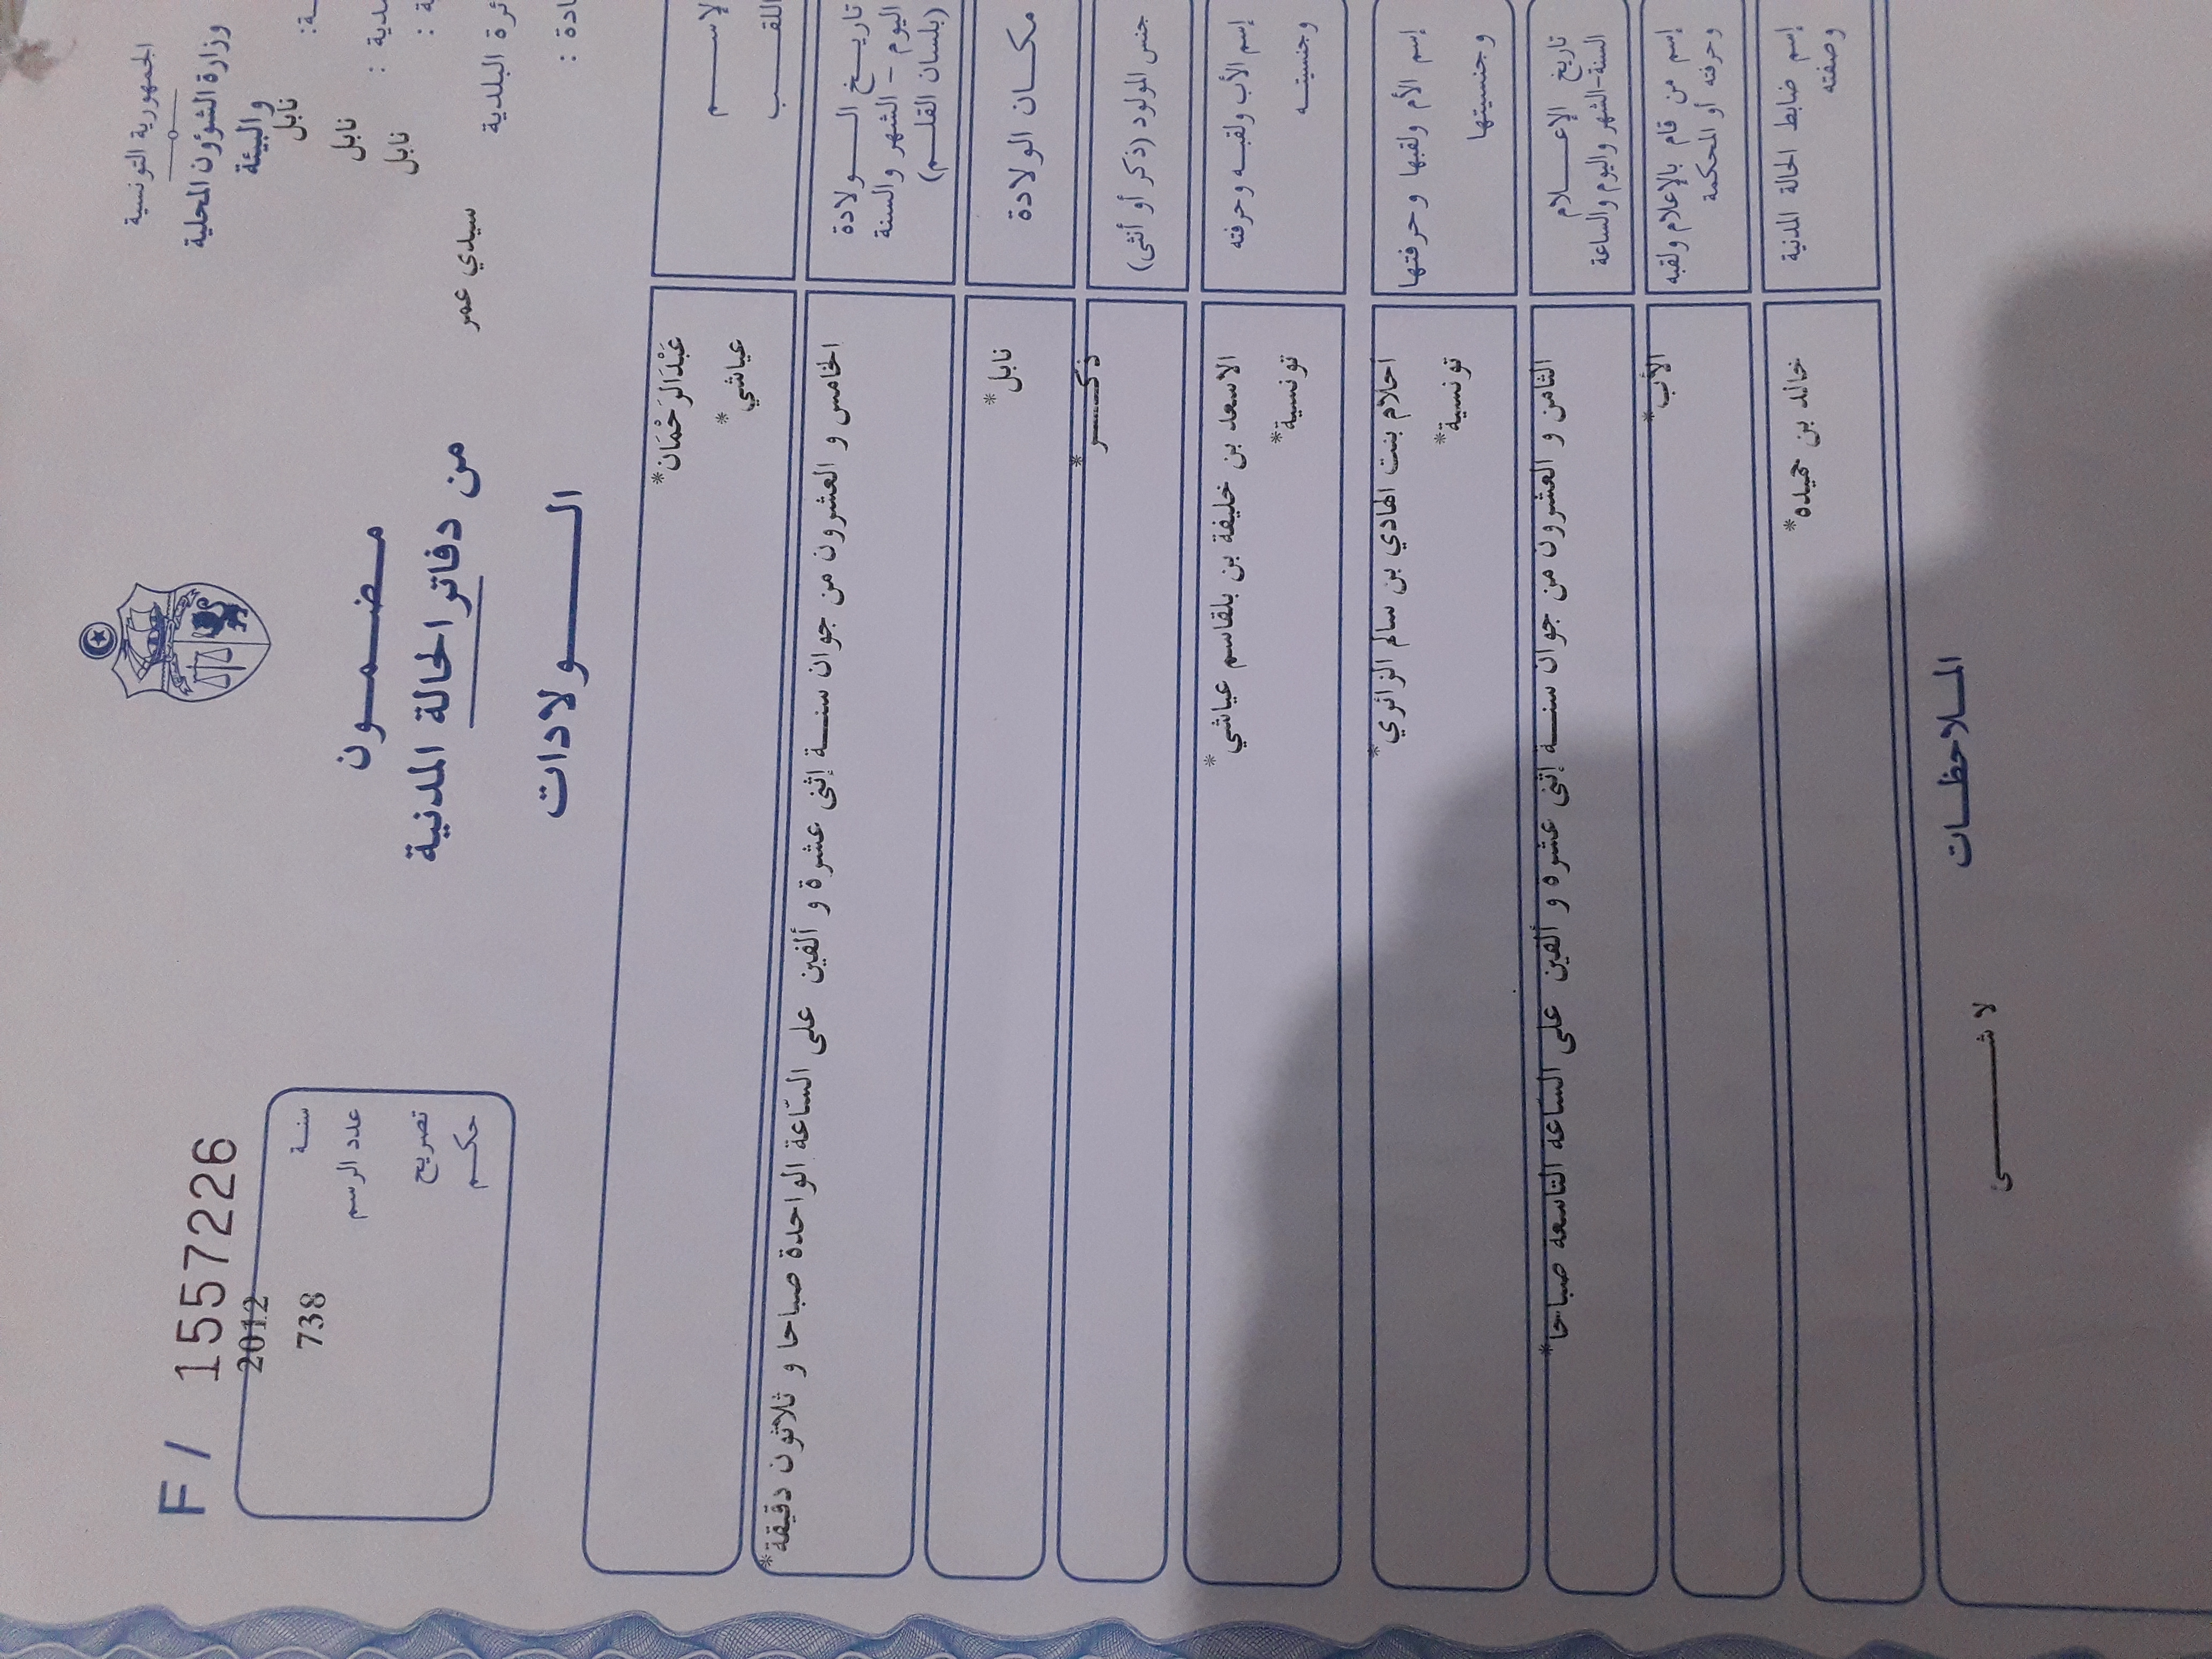 الجمهورية التونسية
وزارة الشؤون المحلية
والبيئة
نابل
نابل
نابل
سيدي عمر
F / 1557226
سنة 2012
عدد الرسم 738
تصريح
حكم
مضمون
من دفاتر الحالة المدنية
الولادات
الإسم
عَبْدَالرَحْمَان*
اللقب
عياشي*
تاريخ الولادة
اليوم - الشهر والسنة
(بلسان القلم)
الخامس و العشرون من جوان سنة إثنى عشرة و ألفين على السّاعة الواحدة صباحا و ثلاثون دقيقة*
مكان الولادة
نابل*
جنس المولود (ذكر أو أنثى)
ذكر*
إسم الأب ولقبه وحرفته
وجنسيته
الاسعد بن خليفة بن بلقاسم عياشي*
تونسية*
إسم الأم ولقبها وحرفتها
وجنسيتها
احلام بنت الهادي بن سالم الزائري*
تونسية*
تاريخ الإعلام
السنة-الشهر واليوم والساعة
الثامن و العشرون من جوان سنة إثنى عشرة و ألفين على السّاعة التّاسعة صباحا*
إسم من قام بالإعلام ولقبه
وحرفته أو المحكمة
الأب*
إسم ضابط الحالة المدنية
وصفته
خالد بن حميده*
الملاحظات
لا شىء